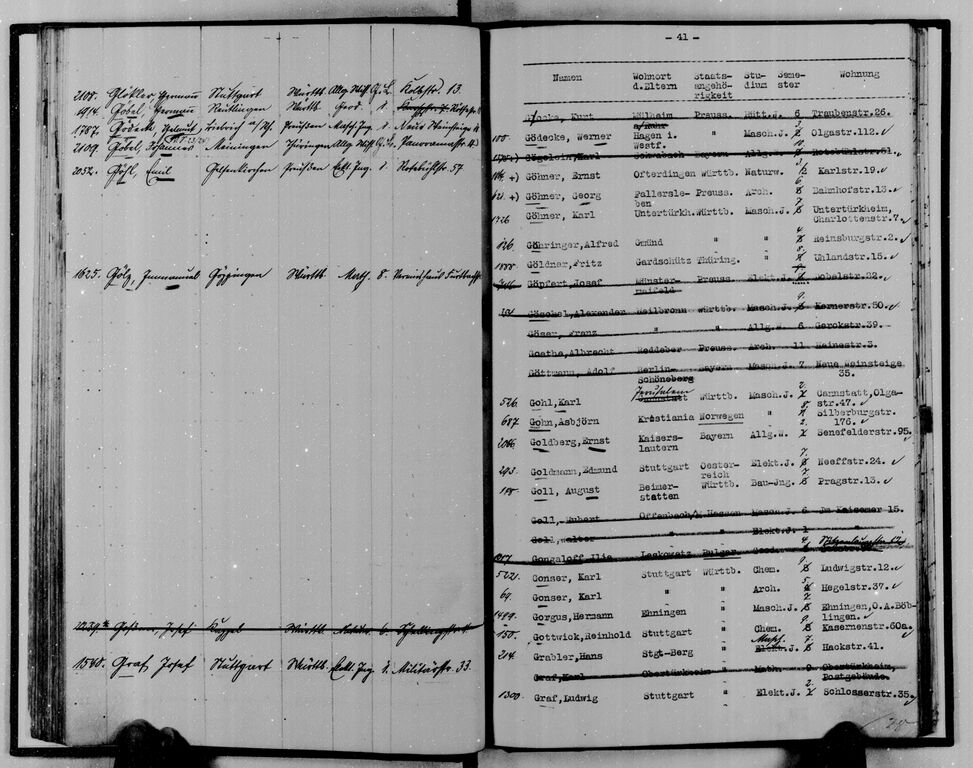 2108. Glökler, Hermann Stuttgart Württ. Allg. Wiss. 2. Kolbstr. 13
1914. Göbel, Hermann Reutlingen Württ. Geod. 1.
1787. Gödeck, Helmut Preußen Masch. Ing. 1. Neue Weinsteige
2109. Göbel, Johannes Meiningen Thüringen Allg. Wiss. Panoramastr. 4
2052. Gößl, Emil Gelsenkirchen Preußen Elekt. Ing. 1. Rotebühlstr. 57
1625. Gölz, Immanuel Göppingen Württ. Math. 8.
Josef Kappel Württ. 6.
1580. Graf Josef Stuttgart Württ. Elekt. Ing. 2. Militärstr. 33.
- 41 -
Namen Wohnort Staats- Stu- Seme- Wohnung
d.Eltern angehö- dium ster
rigkeit
Kurt Mülheim Preuss. Hütt.J. 6 Traubenstr.26.
a/Ruhr
Gödecke, Werner Hagen i. " Masch.J. Olgastr.112.
Westf.
Gögelein, Karl Schwabach Bayern Allg.W. Rotebühlstr.51.
Göhner, Ernst Ofterdingen Württb. Naturw. Karlstr.19.
Göhner, Georg Fallersle- Preuss. Arch. Bahnhofstr.13.
ben
1726 Göhner, Karl Untertürkh. Württb. Masch.J. Untertürkheim,
Charlottenstr.7.
826 Göhringer, Alfred Gmünd " " Reinsburgstr.2.
Göldner, Fritz Gardschütz Thüring. " Uhlandstr.15.
Göpfert, Josef Münster- Preuss. Elekt.J. Mobelstr.22.
maifeld
Göschel, Alexander Heilbronn Württb. Masch.J. Kernerstr.50.
Göser, Franz " " Allg.W. 6 Gerokstr.39.
Goethe, Albrecht Heddeber Preuss. Arch. 11 Heinestr.3.
Göttmann, Adolf Berlin- Bayern Masch.J. 7 Neue Weinsteige
Schöneberg 35.
Jerusalem
526. Gohl, Karl Württb. Masch.J. Cannstatt, Olga-
str.47.
687. Gohn, Asbjörn Kristiania Norwegen " Silberburgstr.
176.
2066 Goldberg, Ernst Kaisers- Bayern Allg.W. Senefelderstr.95.
lautern
293. Goldmann, Edmund Stuttgart Oester- Elekt.J. Neeffstr.24.
reich
Goll, August Beimer- Württb. Bau-Jng. Pragstr.13.
statten
Goll, Hubert Offenbach/M. Hessen Masch.J. 6 Im Kaisemer 15.
Goll, Walter " " Elekt.J. 1 "
Gongaloff, Ilia Leskowatz Bulgar. Geod.
522. Gonser, Karl Stuttgart Württb. Chem. Ludwigstr.12.
69. Gonser, Karl " " Arch. Hegelstr.37.
1499. Gorgus, Hermann Ehningen " Masch.J. Ehningen, O.A.Böb-
lingen.
150. Gottwick, Reinhold Stuttgart " Chem. Kasernenstr.60a.
Masch.
214. Grabler, Hans Stgt-Berg " Elekt.J. Hackstr.41.
Graf, Karl Obertürkheim " Math. 9 Obertürkheim,
Postgebäude.
1300. Graf, Ludwig Stuttgart " Elekt.J. Schlosserstr.35.